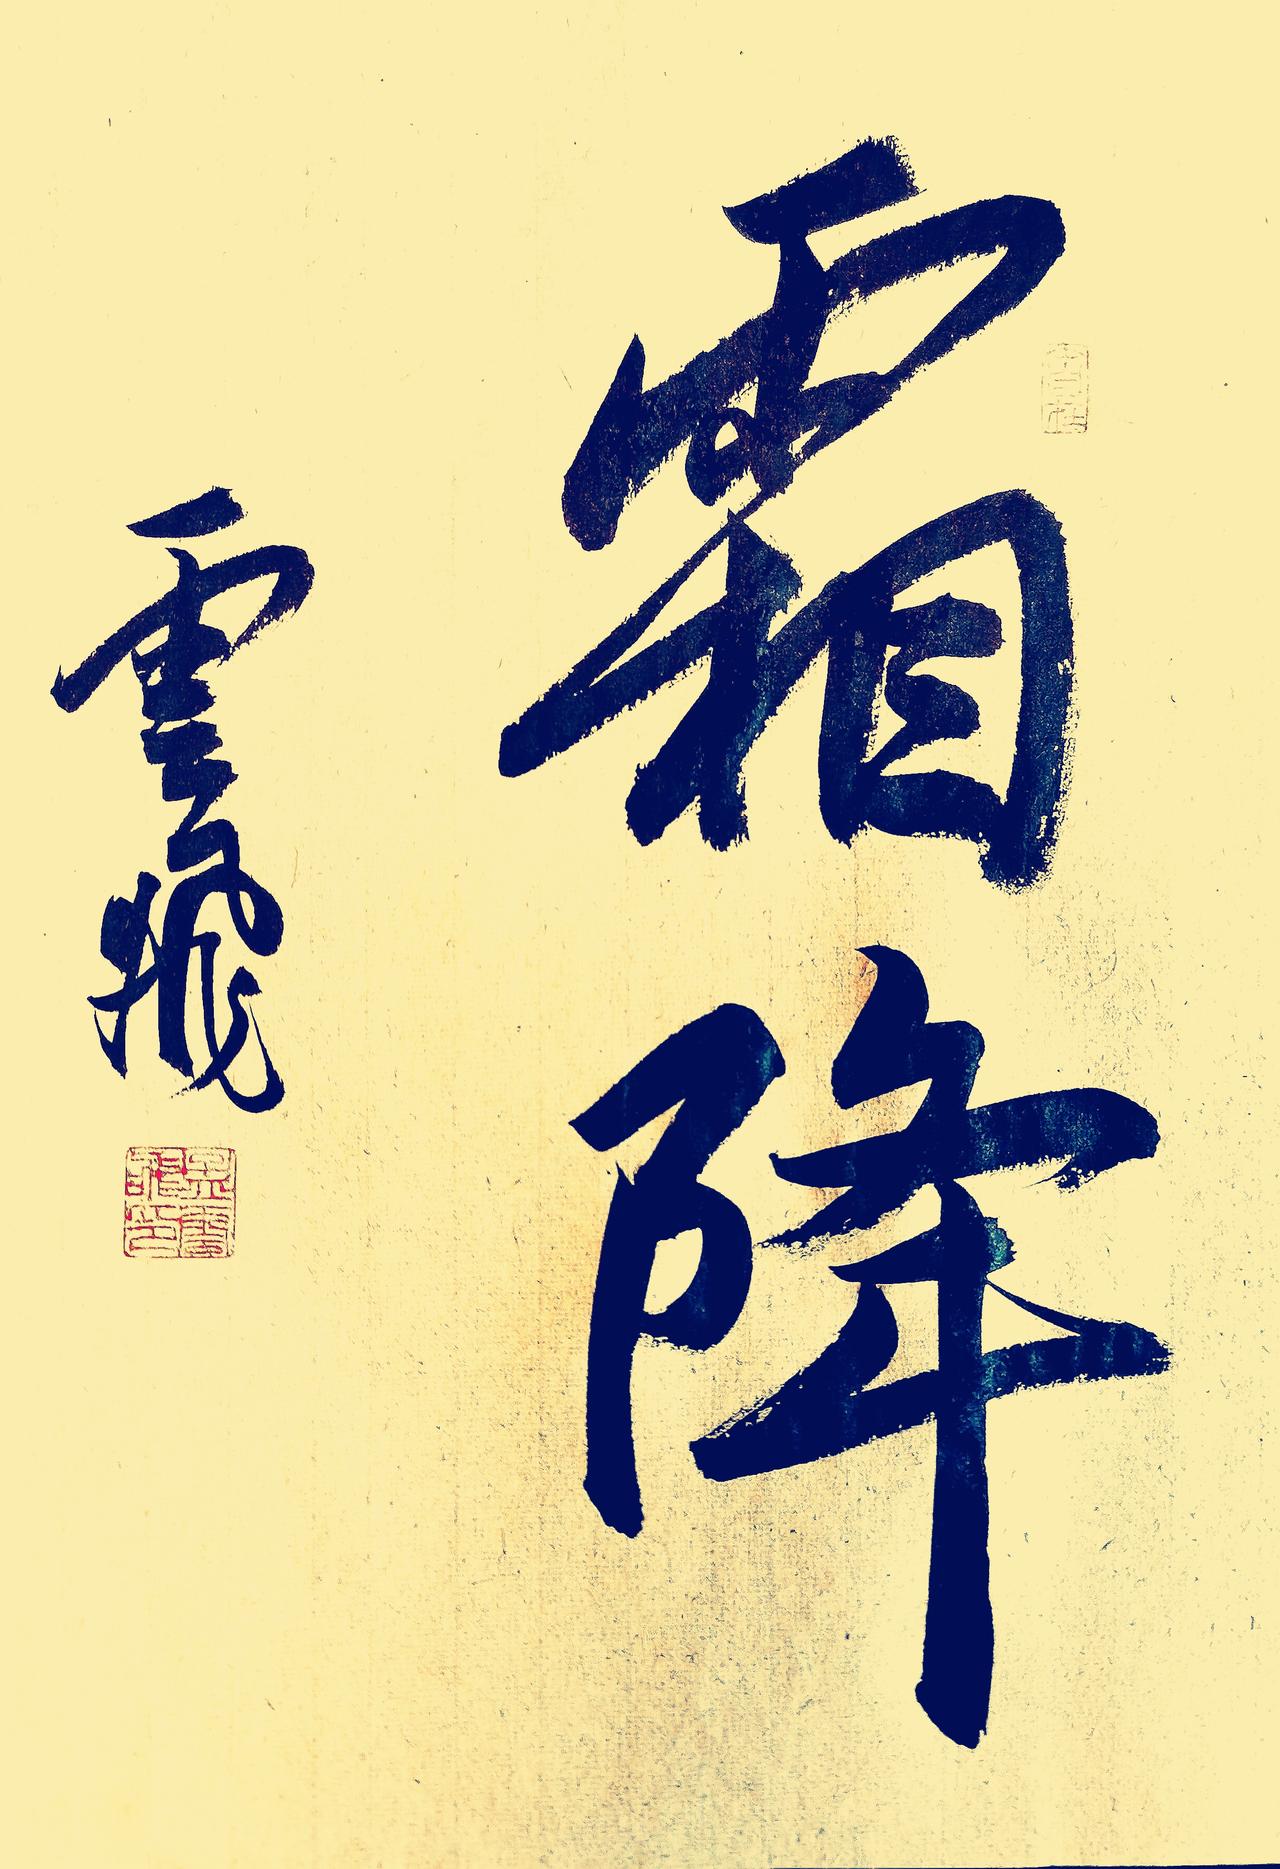 霜降
雲飛